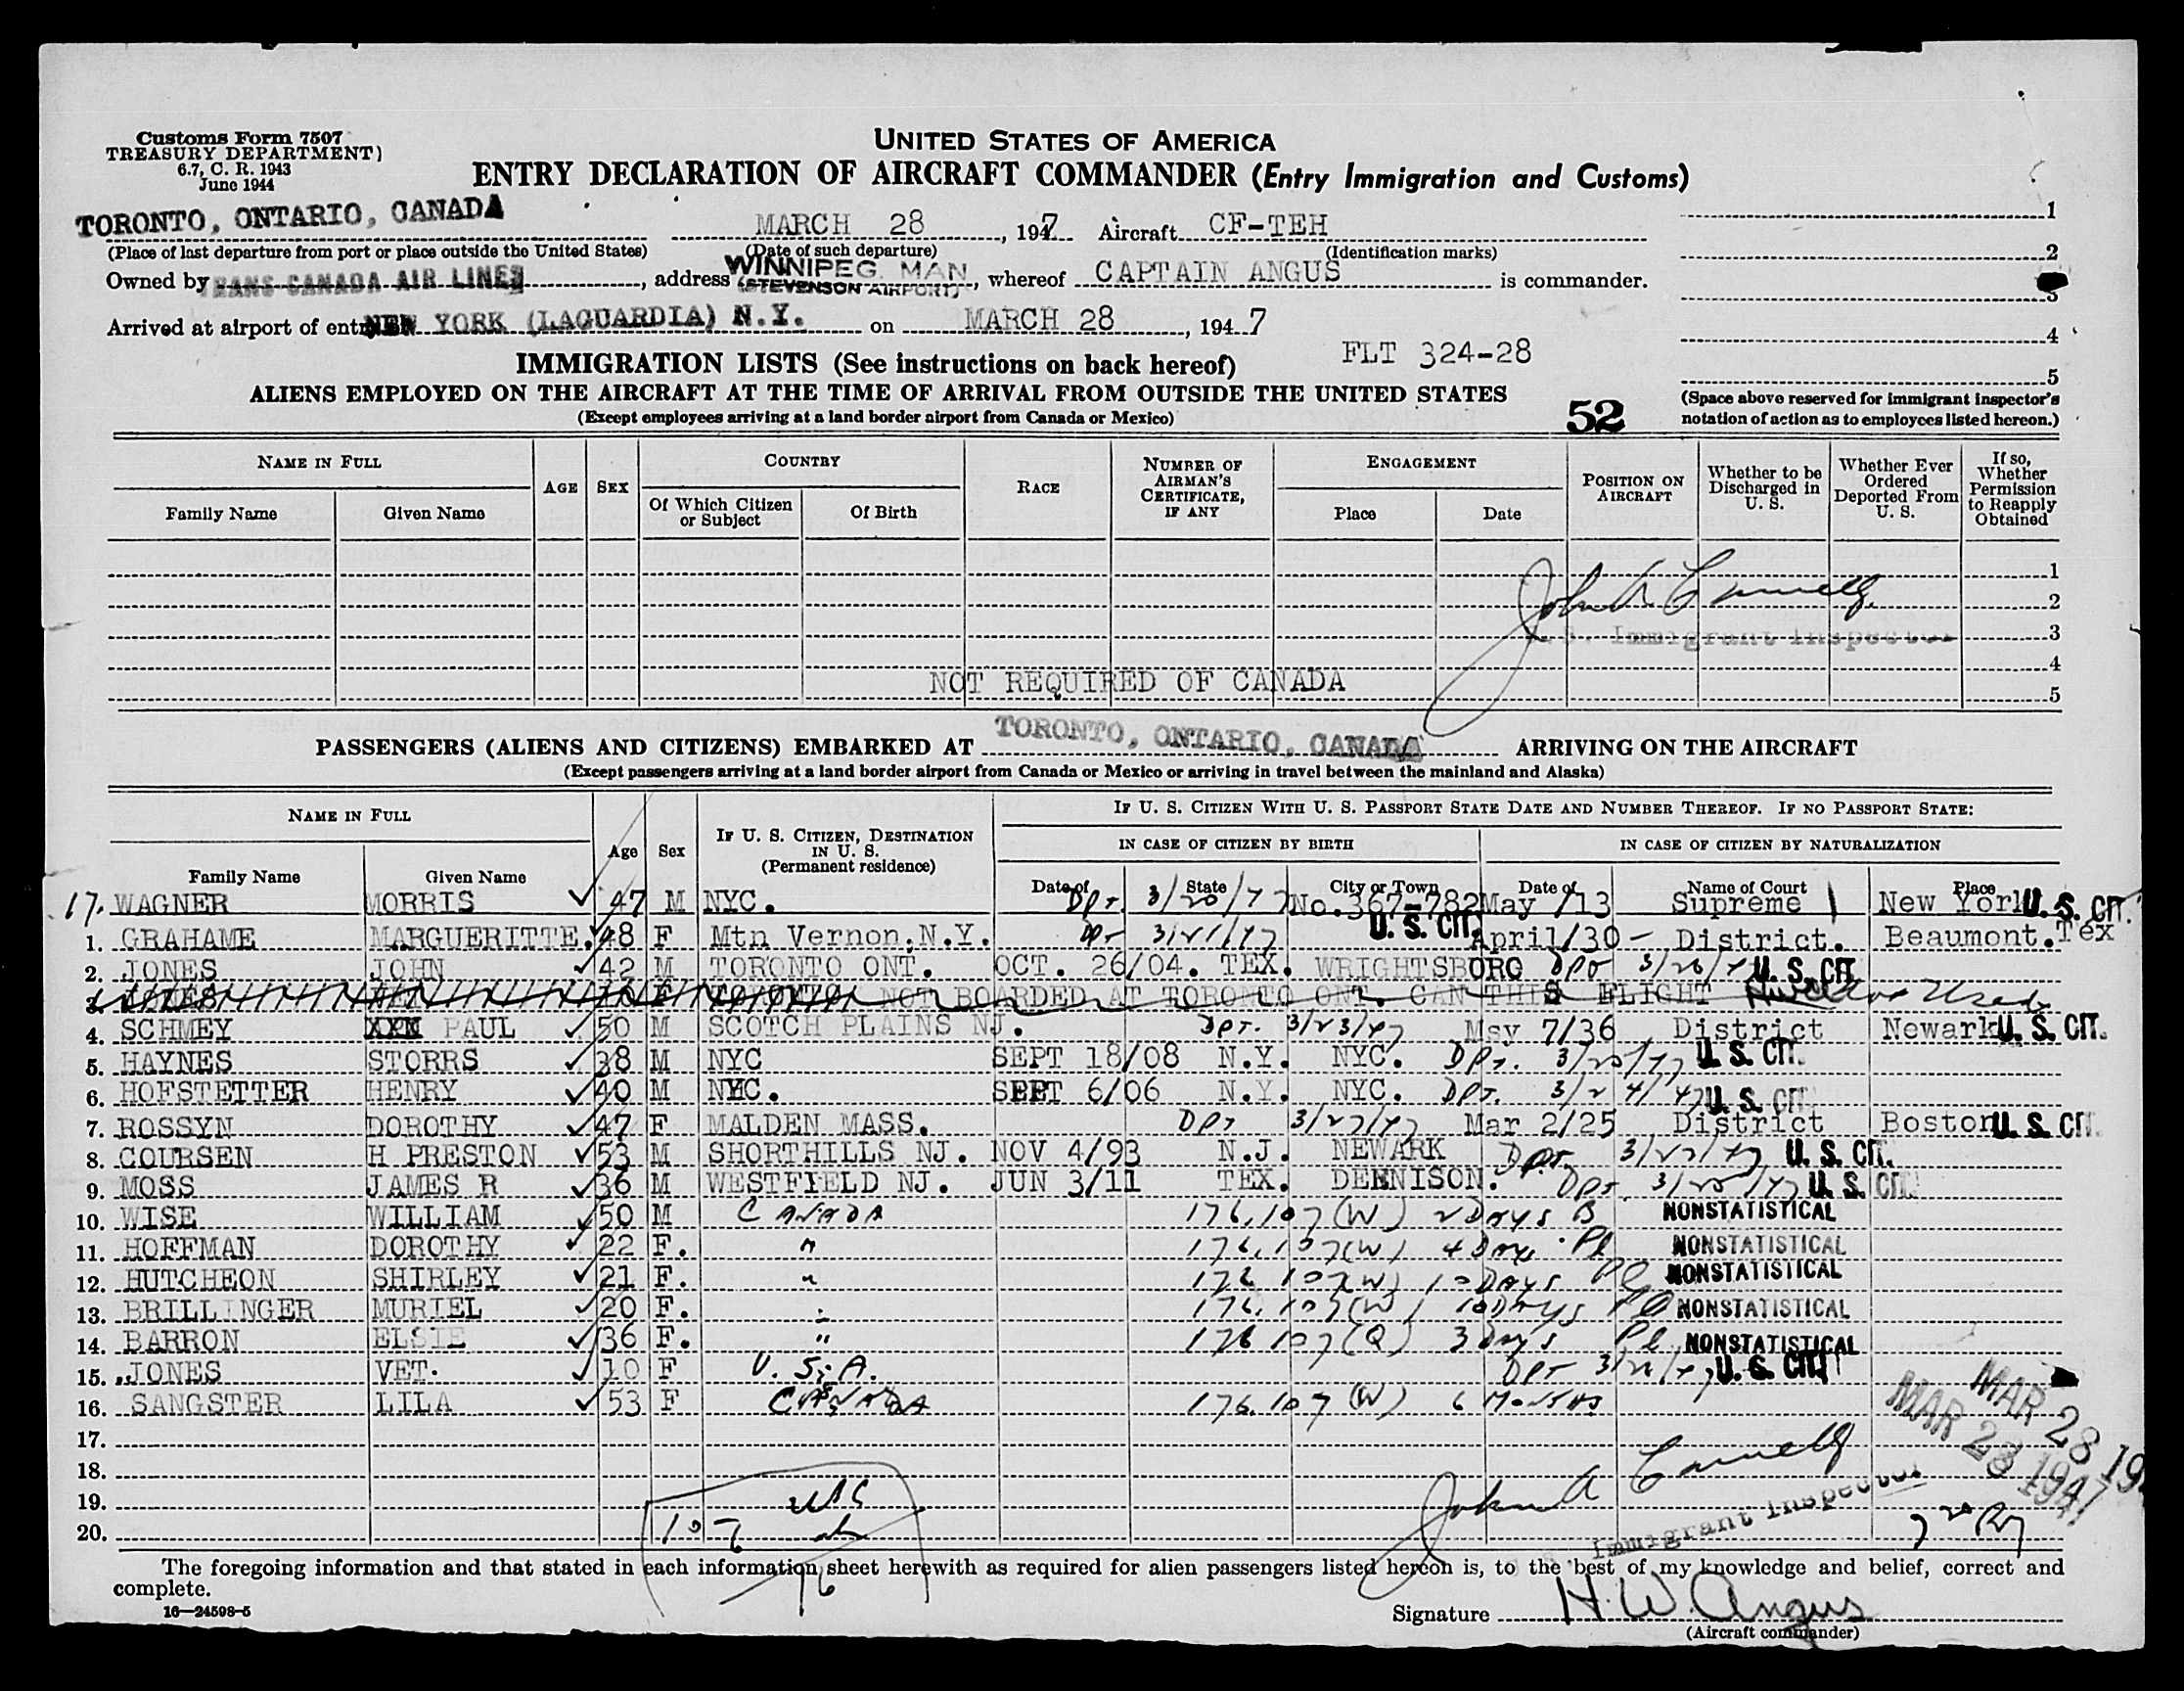 Customs Form 7507
TREASURY DEPARTMENT)
6.7, C. R. 1943
June 1944
UNITED STATES OF AMERICA
ENTRY DECLARATION OF AIRCRAFT COMMANDER (Entry Immigration and Customs)
TORONTO, ONTARIO, CANADA MARCH 28, 1947 Aircraft CF-TEH 1
(Place of last departure from port or place outside the United States) (Date of such departure) (Identification marks) 2
Owned by TRANS-CANADA AIR LINES, address WINNIPEG. MAN (STEVENSON AIRPORT), whereof CAPTAIN ANGUS is commander. 3
Arrived at airport of entry NEW YORK (LAGUARDIA) N.Y. on MARCH 28, 1947 4
IMMIGRATION LISTS (See instructions on back hereof) FLT 324-28 5
ALIENS EMPLOYED ON THE AIRCRAFT AT THE TIME OF ARRIVAL FROM OUTSIDE THE UNITED STATES
(Except employees arriving at a land border airport from Canada or Mexico) 52
(Space above reserved for immigrant inspector's notation of action as to employees listed hereon.)
NAME IN FULL
Family Name Given Name
AGE SEX
COUNTRY
Of Which Citizen or Subject Of Birth
RACE
NUMBER OF AIRMAN'S CERTIFICATE, IF ANY
ENGAGEMENT
Place Date
POSITION ON AIRCRAFT
Whether to be Discharged in U. S.
Whether Ever Ordered Deported From U. S.
If so, Whether Permission to Reapply Obtained
1
2
U.S. Immigrant Inspector 3
4
NOT REQUIRED OF CANADA 5
PASSENGERS (ALIENS AND CITIZENS) EMBARKED AT TORONTO, ONTARIO, CANADA ARRIVING ON THE AIRCRAFT
(Except passengers arriving at a land border airport from Canada or Mexico or arriving in travel between the mainland and Alaska)
NAME IN FULL
Family Name Given Name
Age Sex
IF U. S. CITIZEN, DESTINATION IN U. S. (Permanent residence)
IF U. S. CITIZEN WITH U. S. PASSPORT STATE DATE AND NUMBER THEREOF. IF NO PASSPORT STATE:
IN CASE OF CITIZEN BY BIRTH IN CASE OF CITIZEN BY NATURALIZATION
Date of State City or Town Date of Name of Court Place
17. WAGNER MORRIS ✓ 47 M NYC. Dpt. 3/20/47 No. 367-782 May /13 Supreme New York U. S. CIT.
1. GRAHAME MARGUERITTE. 48 F Mtn Vernon. N.Y. Dpt 3/21/47 U. S. CIT. April/30 - District. Beaumont. Tex
2. JONES JOHN ✓ 42 M TORONTO ONT. OCT. 26/04. TEX. WRIGHTSBORO Dpt U. S. CIT
3. JONES F TORONTO NOT BOARDED AT TORONTO ONT. CAN THIS FLIGHT
4. SCHMEY PAUL ✓ 50 M SCOTCH PLAINS NJ. Dpt. 3/23/47 May 7/36 District Newark U. S. CIT.
5. HAYNES STORRS ✓ 38 M NYC SEPT 18/08 N.Y. NYC. Dpt. 3/20/47 U. S. CIT.
6. HOFSTETTER HENRY ✓ 40 M NYC. SEPT 6/06 N.Y. NYC. Dpt. 3/24/47 U. S. CIT
7. ROSSYN DOROTHY ✓ 47 F MALDEN MASS. Dpt 3/27/47 Mar 2/25 District Boston U. S. CIT.
8. COURSEN H PRESTON ✓ 53 M SHORTHILLS NJ. NOV 4/93 N.J. NEWARK Dpt. 3/27/47 U. S. CIT.
9. MOSS JAMES R ✓ 36 M WESTFIELD NJ. JUN 3/11 TEX. DENNISON. Dpt. U. S. CIT.
10. WISE WILLIAM ✓ 50 M CANADA 176.107 (W) 2 DAYS B NONSTATISTICAL
11. HOFFMAN DOROTHY ✓ 22 F. " 176.107 (W) 4 Days Pl NONSTATISTICAL
12. HUTCHEON SHIRLEY ✓ 21 F. " 176 107(W) 10 DAYS Pl NONSTATISTICAL
13. BRILLINGER MURIEL ✓ 20 F. " 176.107(W) 10 Days Pl NONSTATISTICAL
14. BARRON ELSIE ✓ 36 F. " 176 107(Q) 3 Days Pl NONSTATISTICAL
15. JONES VET. ✓ 10 F U. S. A. Dpt U. S. CIT
16. SANGSTER LILA ✓ 53 F CANADA 176.107 (W) 6 MONTHS
17.
18.
19.
20.
MAR 28 19
MAR 28 1947
10 USC
6
16
John A Connelly
Immigrant Inspector
The foregoing information and that stated in each information sheet herewith as required for alien passengers listed hereon is, to the best of my knowledge and belief, correct and
complete.
16—24598-5
Signature H. W. Angus
(Aircraft commander)